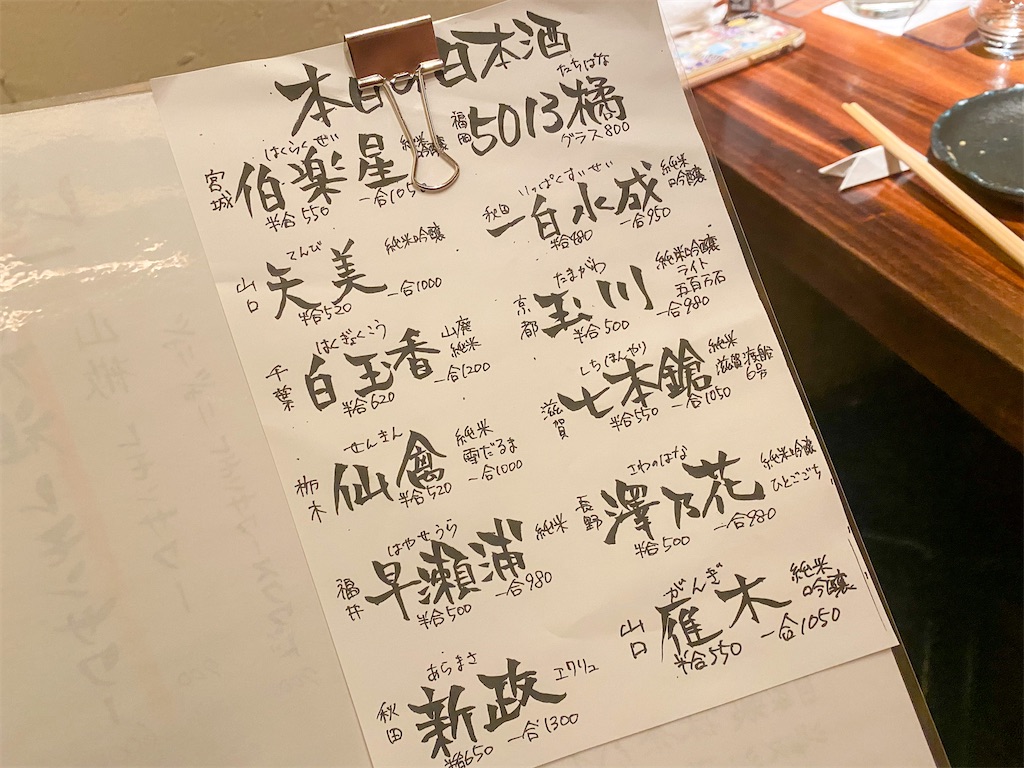 本日の日本酒
宮城 伯楽星 はくらくせい 純米吟醸
半合550 一合105
福岡 5013橘 たちばな
グラス800
秋田 一白水成 いっぱくすいせい 純米吟醸
半合480 一合950
山口 天美 てんび 純米吟醸
半合520 一合1000
京都 玉川 たまがわ 純米吟醸 ライト 五百万石
半合500 一合980
千葉 白玉香 はくぎょくこう 山廃純米
半合620 一合1200
滋賀 七本鎗 しちほんやり 純米 滋賀渡船6号
半合550 一合1050
栃木 仙禽 せんきん 純米 雪だるま
半合520 一合1000
長野 澤乃花 さわのはな 純米吟醸 ひとごこち
半合500 一合980
福井 早瀬浦 はやせうら 純米
半合500 一合980
山口 雁木 がんぎ 純米吟醸
半合550 一合1050
秋田 新政 あらまさ エクリュ
半合650 一合1300